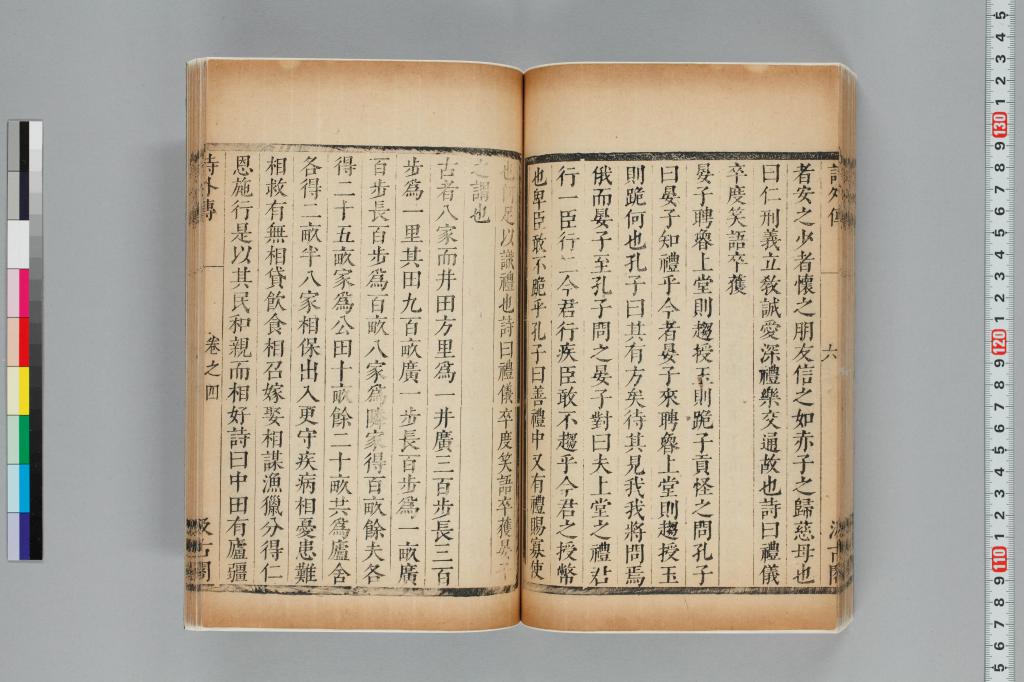 詩外傳 六 汲古閣
者安之少者懷之朋友信之如赤子之歸慈母也
曰仁刑義立敎誠愛深禮樂交通故也詩曰禮儀
卒度笑語卒獲
晏子聘魯上堂則趨授玉則跪子貢怪之問孔子
曰晏子知禮乎今者晏子來聘魯上堂則趨授玉
則跪何也孔子曰其有方矣待其見我我將問焉
俄而晏子至孔子問之晏子對曰夫上堂之禮君
行一臣行二今君行疾臣敢不趨乎今君之授幣
也卑臣敢不跪乎孔子曰善禮中又有禮賜寡使
也何足以識禮也詩曰禮儀卒度笑語卒獲晏子
之謂也
古者八家而井田方里爲一井廣三百步長三百
步爲一里其田九百畝廣一步長百步爲一畝廣
百步長百步爲百畝八家爲隣家得百畝餘夫各
得二十五畝家爲公田十畝餘二十畝共爲廬舍
各得二畝半八家相保出入更守疾病相憂患難
相救有無相貸飲食相召嫁娶相謀漁獵分得仁
恩施行是以其民和親而相好詩曰中田有廬疆
詩外傳 卷之四 汲古閣